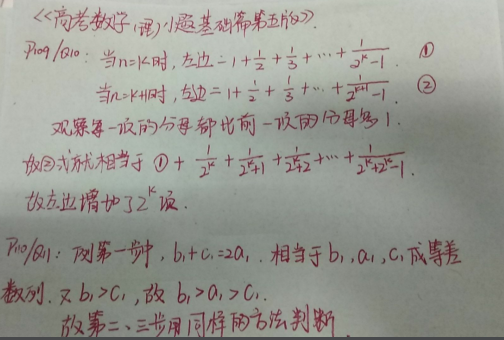 <<高考数学(理)小题基础篇第五版>>.
P109/Q10: 当n=k时, 左边=1+1/2+1/3+…+1/(2^k-1). ①
当n=k+1时, 左边=1+1/2+1/3+…+1/(2^(k+1)-1). ②
观察每一项的分母都比前一项的分母多1.
故②式就相当于①+1/2^k+1/(2^k+1)+1/(2^k+2)+…+1/(2^k+2^k-1).
故左边增加了2^k项.
P110/Q11: 则第一步中, b₁+c₁=2a₁. 相当于b₁,a₁,c₁成等差
数列. 又b₁>c₁, 故b₁>a₁>c₁.
故第二、三步用同样的方法判断.